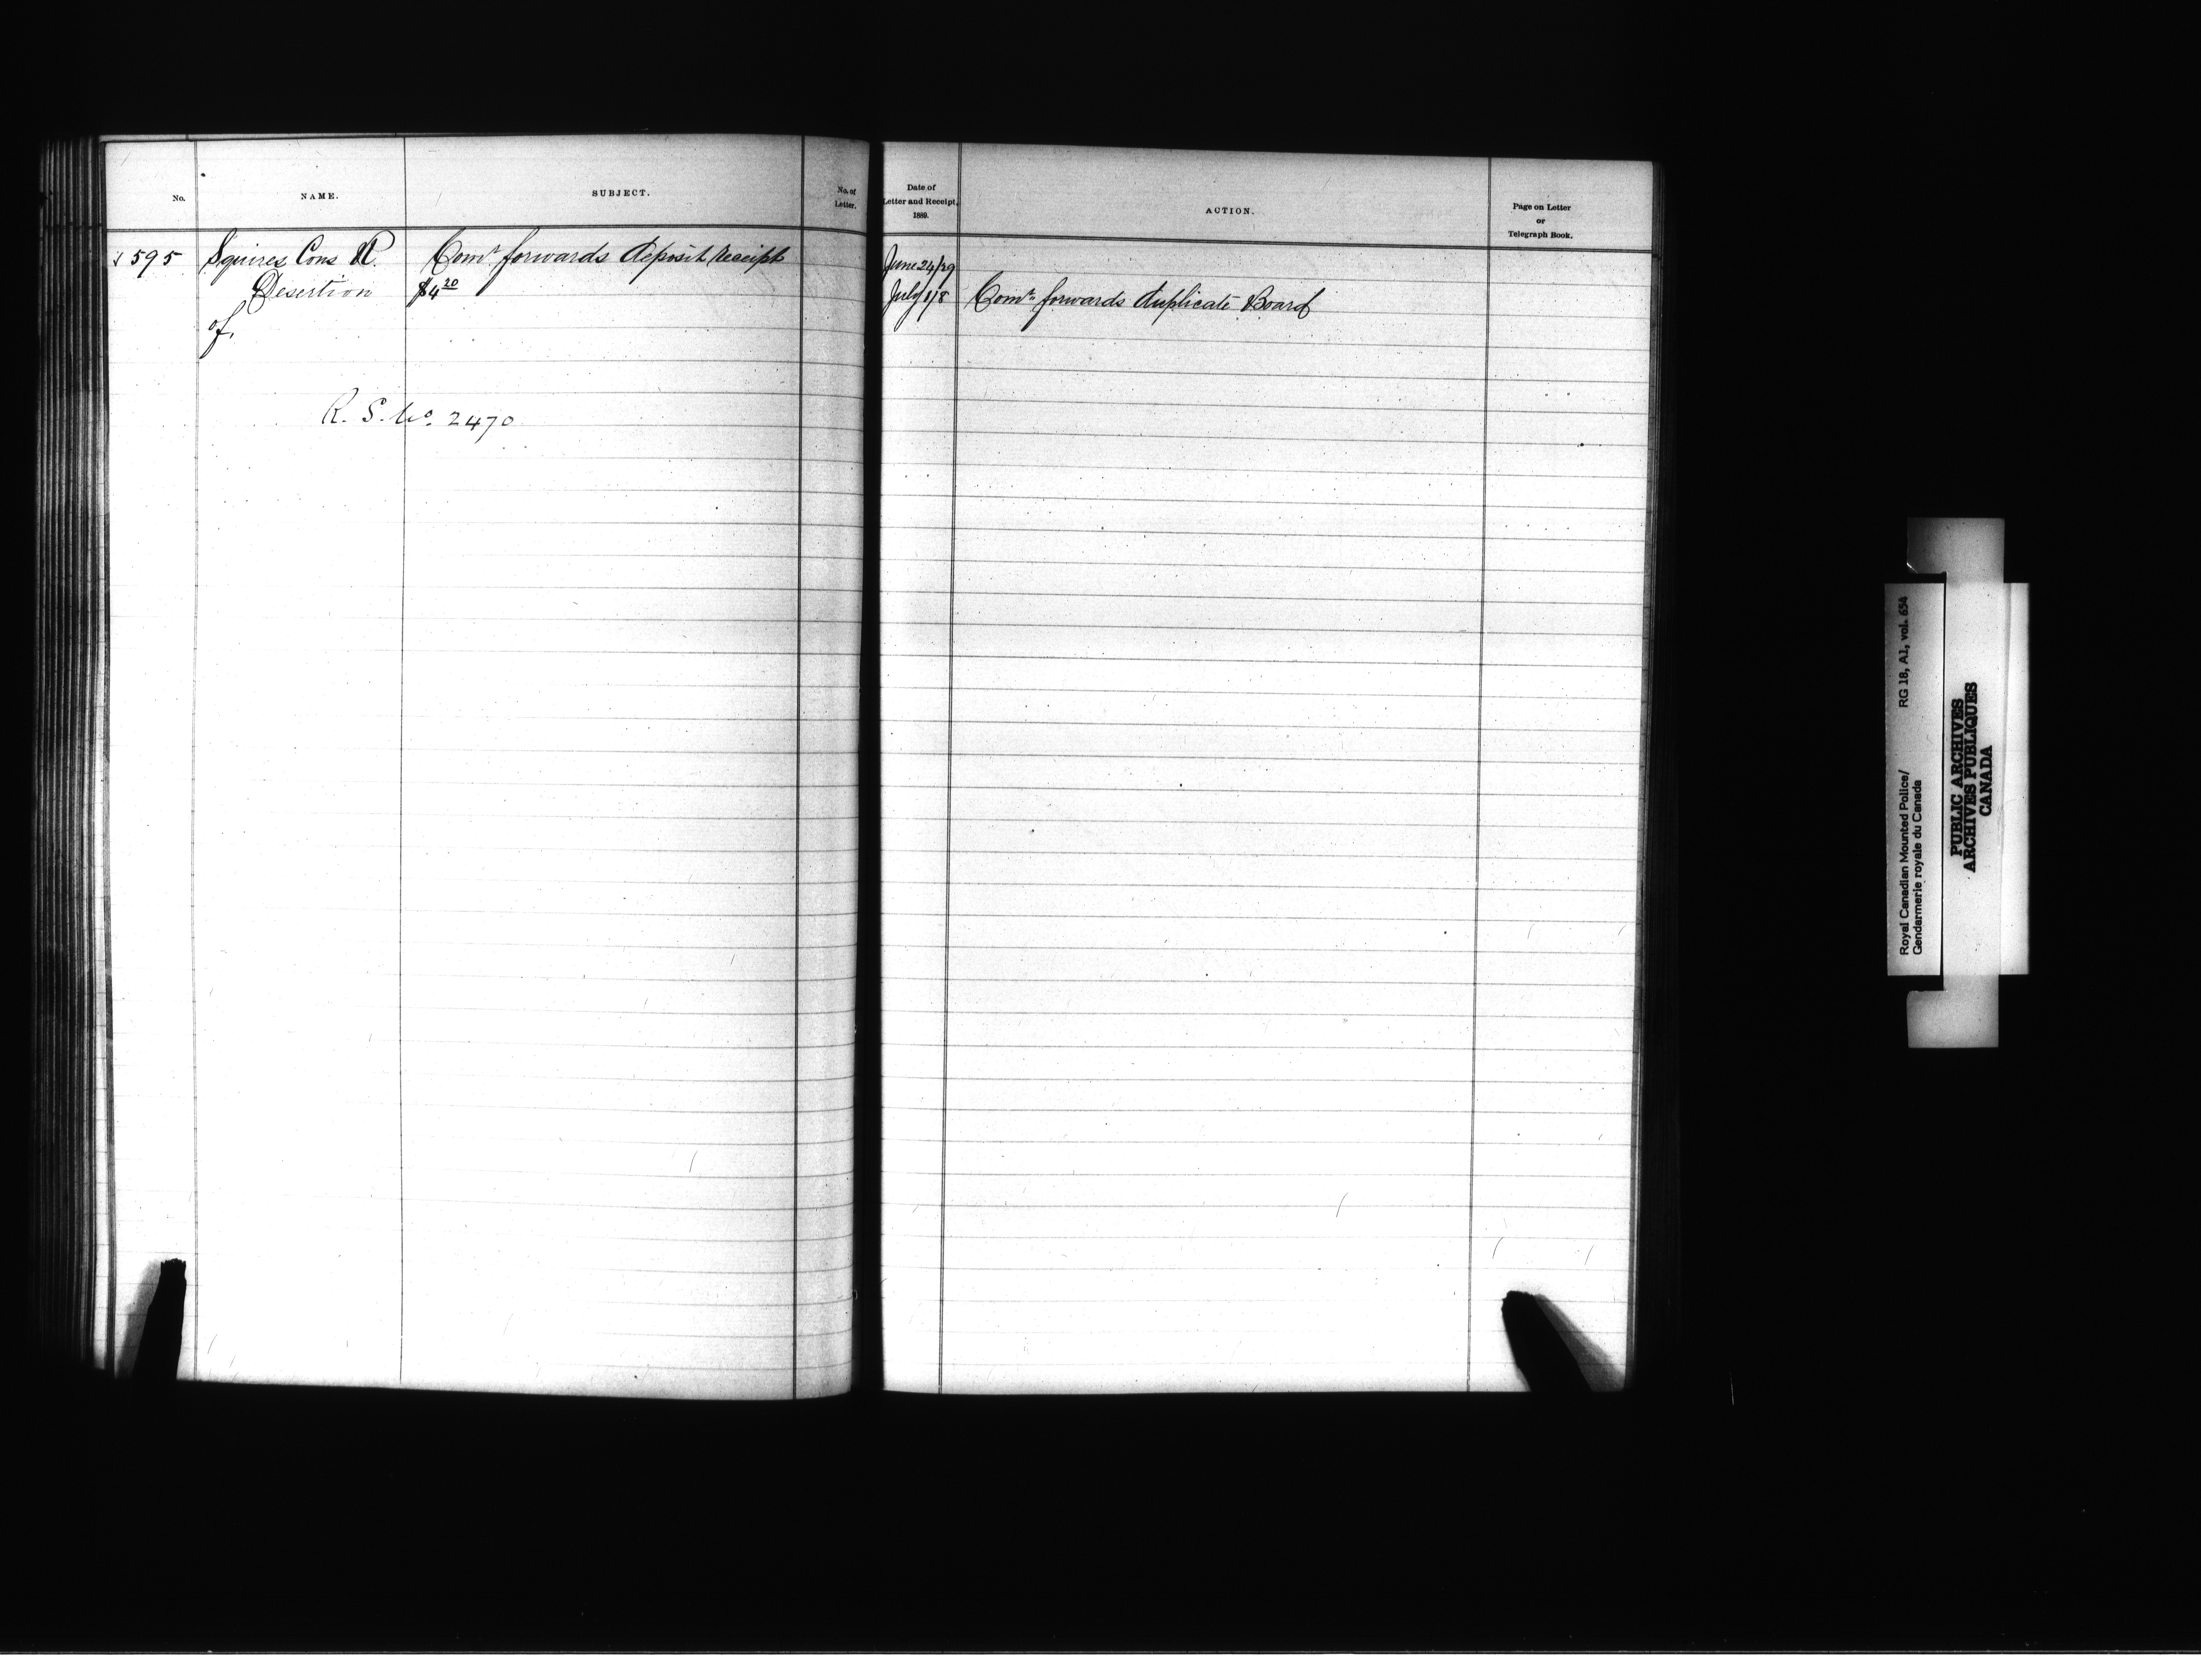 No.
NAME.
SUBJECT.
No. of
Letter.
Date of
Letter and Receipt,
1889.
ACTION.
Page on Letter
or
Telegraph Book.
595 Squires Cons Comr. forwards deposit receipt
Desertion $4 20
of.
June 24/29
July 1/8 Comr. forwards duplicate Board
R. S. No. 2470
Royal Canadian Mounted Police/ RG 18, A1, vol. 654
Gendarmerie royale du Canada
PUBLIC ARCHIVES
ARCHIVES PUBLIQUES
CANADA